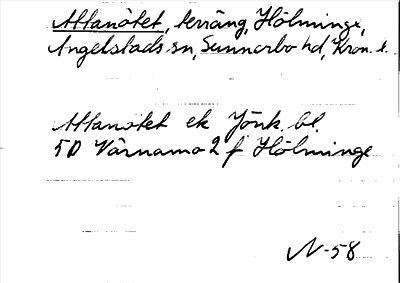 Attanötet, terräng, Hölminge,
Angelstads sn, Sunnerbo hd, Kron. l.
Attanötet ek Jönk. bl.
5D Värnamo 2 f Hölminge
N-58